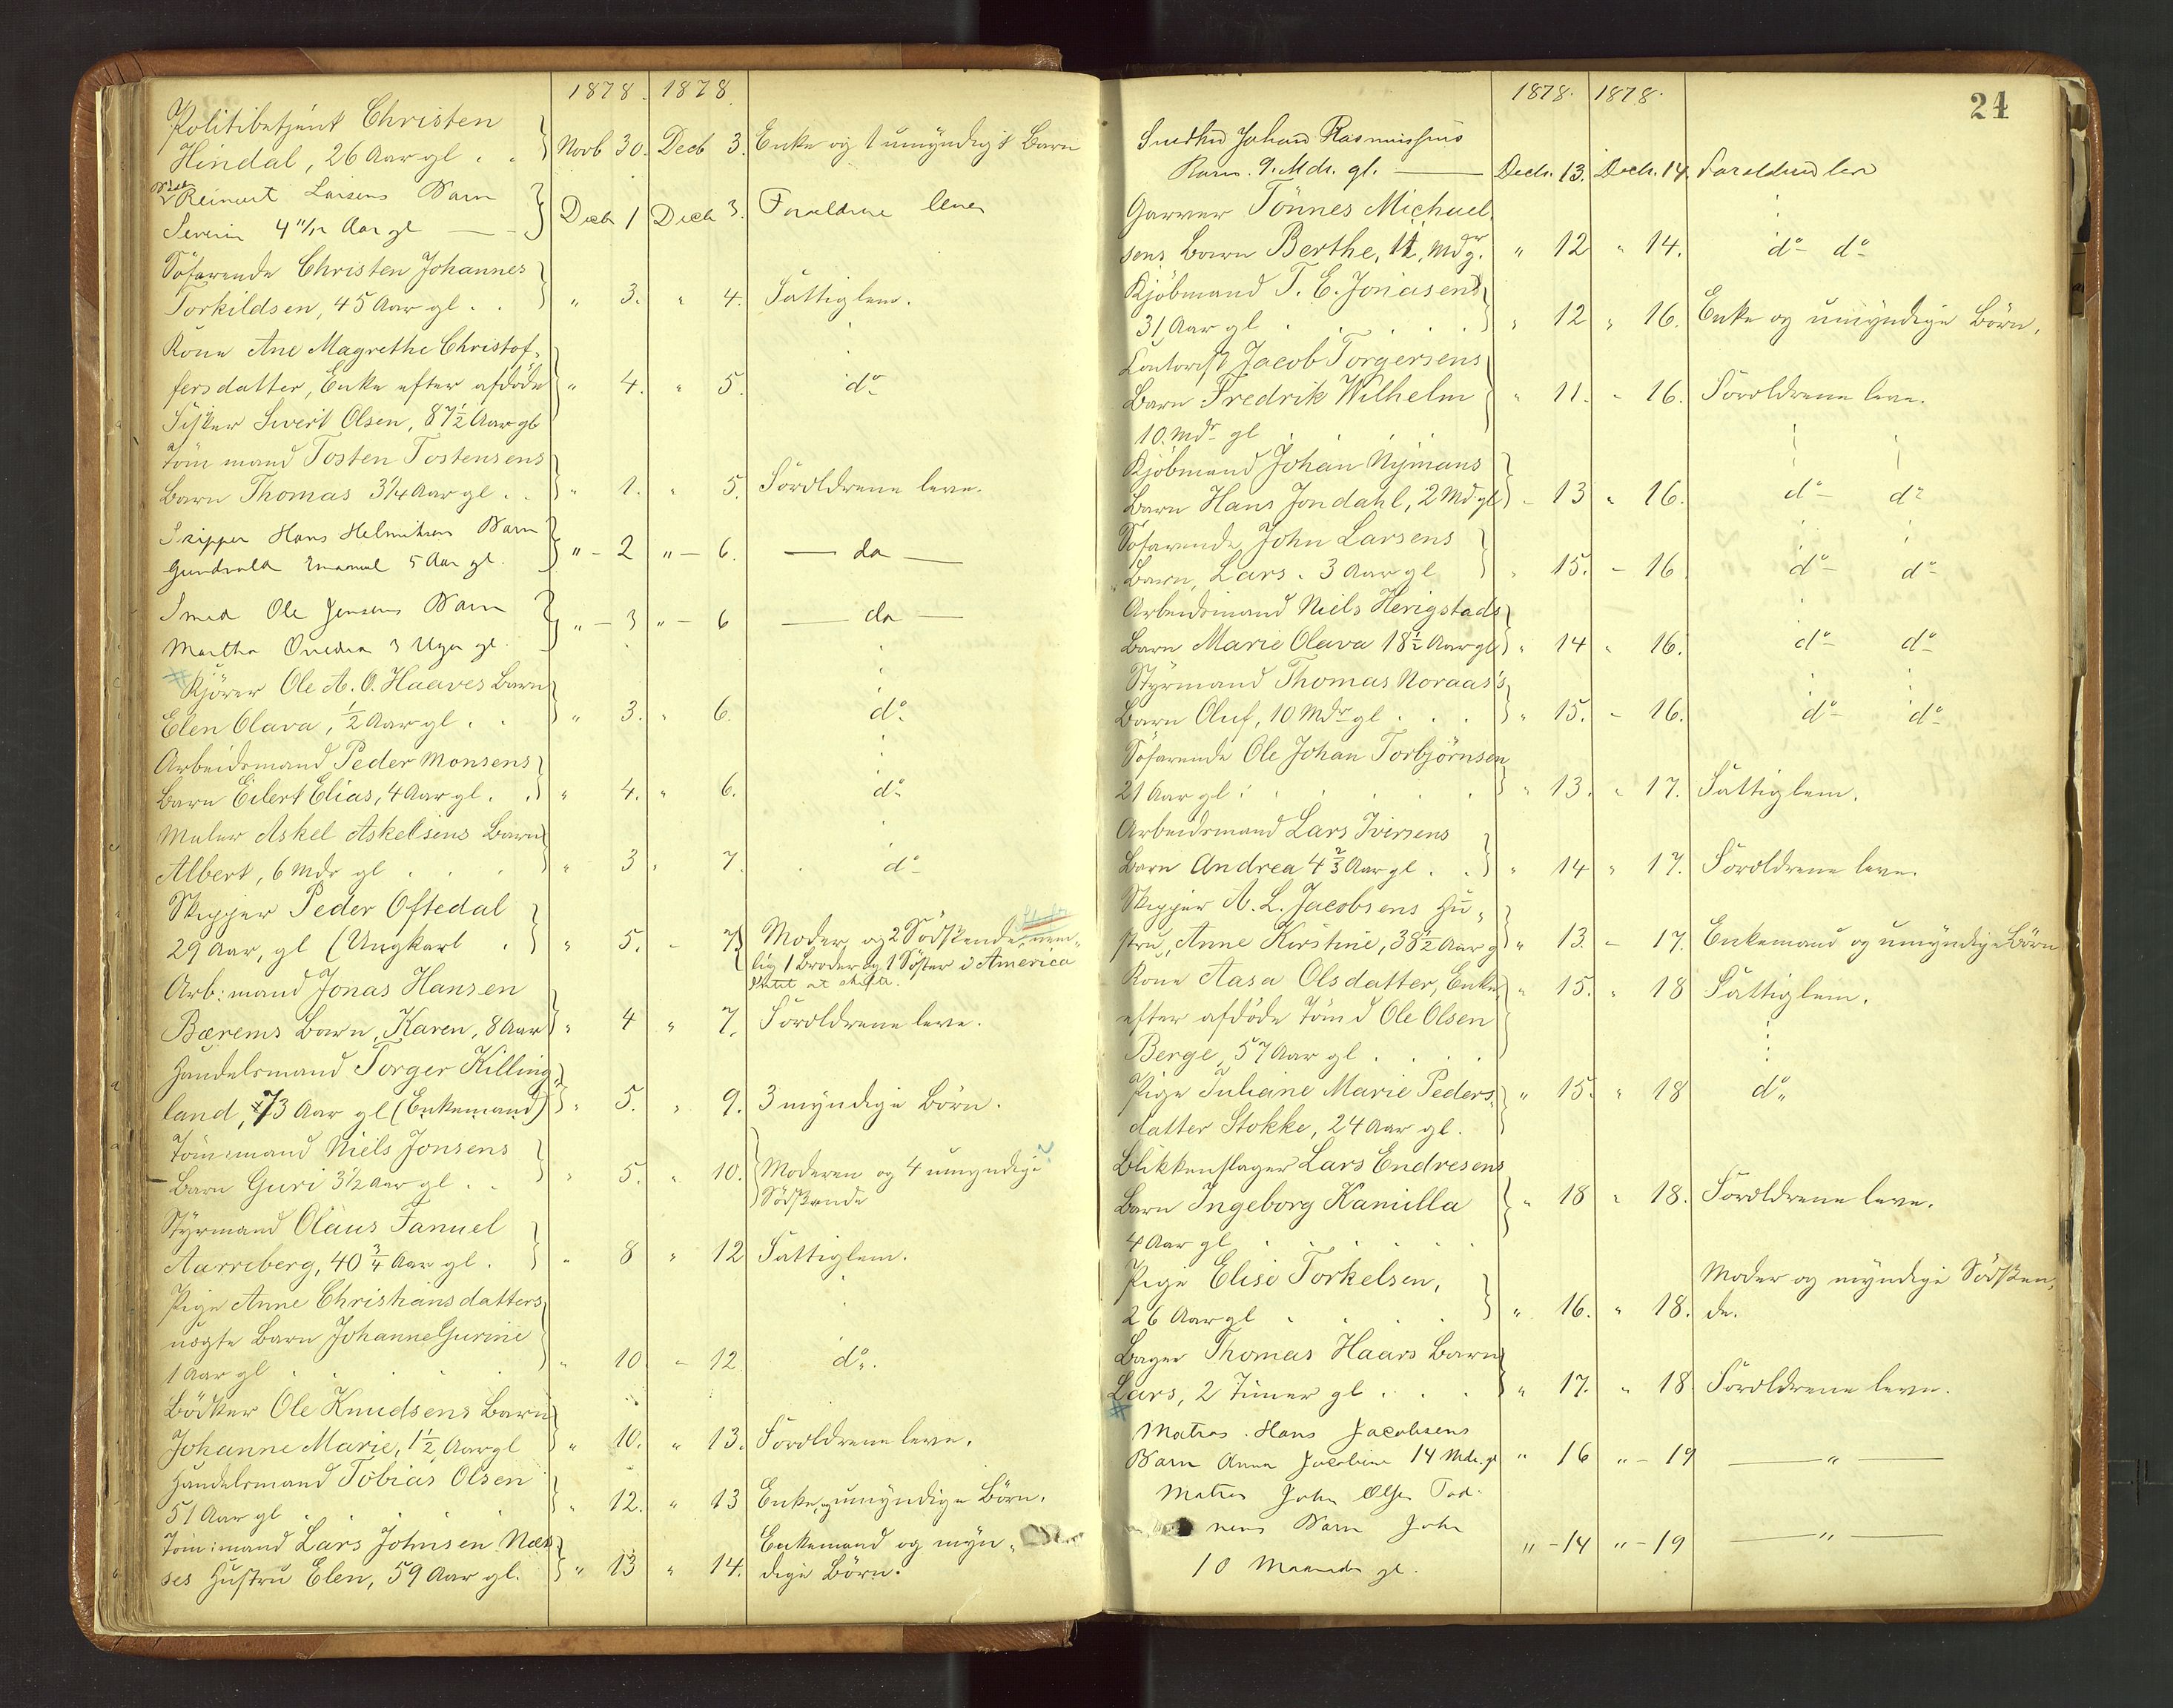 1878. 1878.
Politibetjent Christen
Hindal, 26 Aar gl. . } Novb 30. Decb 3. Enke og 1 umyndigt Barn
Reinert Larsens Barn
Severin 4 11/12 Aar gl — } Decb 1 Decb 3. Forældrene lever
Söfarende Christen Johannes
Torkildsen, 45 Aar gl. . } " 3. " 4. Fattiglem.
Kone Ane Magrethe Christof-
fersdatter, Enke efter afdöde } " 4. " 5. do
Fisker Sivert Olsen, 87½ Aar gl
Töm mand Tosten Tostensens
Barn Thomas 3¼ Aar gl. . } " 1. " 5. Forældrene leve.
Skipper Hans Helmiksen Barn
Gundvald Emanuel 5 Aar gl. } " - 2 " - 6. — do —
Smed Ole Jensens Barn
Martha 3 Uger gl. } " - 3 " - 6 — do —
Kjörer Ole A. O. Haaves Barn
Elen Olava, ½ Aar gl. . } " 3. " 6. do
Arbeidsmand Peder Monsens
Barn Eilert Elias, 4 Aar gl. . } " 4. " 6. do
Maler Askel Askelsens Barn
Albert, 6 Mdr gl . . . } " 3 " 7. do
Skipper Peder Oftedal
29 Aar, gl (Ungkarl . } " 5. - 7. Moder og 2 Södskende, nem-
lig 1 Broder og 1 Söster i America
Intet at skifte.
Arb: mand Jonas Hansen
Bærems Barn, Karen, 8 Aar } " 4 " 7. Forældrene leve.
Handelsmand Torger Killing-
land, 73 Aar gl (Enkemand) } " 5. " 9. 3 myndige Börn.
Töm: mand Niels Jonsens
Barn Guri 3½ Aar gl. . } " 5. " 10. Moderen og 4 umyndige
Södskende
Styrmand Olaus Fanuel
Aarreberg, 40 ¾ Aar gl. } " 8 " 12 Fattiglem.
Pige Anne Christiansdatters
uægte Barn Johanne Gurine
1 Aar gl . . . . . } " 10 - 12. do.
Bödker Ole Knudsens Barn
Johanne Marie, 1½ Aar gl } " 10. " 13. Forældrene leve.
Handelsmand Tobias Olsen
51 Aar gl . . . . } " 12. " 13 Enke, umyndige Börn.
Töm: mand Lars Johnsen Næs-
ses Hustru Elen, 59 Aar gl. } " 13 " 14. Enkemand og myn-
dige Börn.
24
1878. 1878.
Snedker Johan Rasmussens
Barn. 9. Mdr. gl. — Decbr. 13. Decbr. 14. Forældrene leve
Garver Tönnes Michael-
sens Barn Berthe, 11, Mdr g. " 12 " 14. do do
Kjöbmand T. E. Jonasens
31 Aar gl . . . . . } " 12 " 16. Enke og umyndige Börn.
Contorist Jacob Torgersens
Barn Fredrik Wilhelm } " 11. " 16. Forældrene leve.
10. Mdr gl . . . .
Kjöbmand Johan Nymans
Barn Hans Jondahl, 2 Md gl } - 13 " 16. do do
Söfarende John Larsens
Barn, Lars. 3 Aar gl } " 15. - 16 do do
Arbeidsmand Niels Herigstads
Barn Marie Olava 18½ Aar gl } " 14 " 16. do do
Styrmand Thomas Noraas's
Barn Oluf, 10 Mdr gl . . . } " 15. - 16. do do
Söfarende Ole Johan Torbjörnsen
21 Aar gl. . . . . . } " 13. " 17. Fattiglem.
Arbeidsmand Lars Iversens
Barn Andrea 4 ⅔ Aar gl. . } " 14 " 17. Forældrene leve.
Skipper A. L. Jacobsens Hu-
stru, Anne Kirstine, 38½ Aar g } " 13. - 17. Enkemand og umyndige Börn
Kone Aasa Olsdatter, Enke } " 15. " 18 Fattiglem.
efter afdöde Töm d Ole Olsen
Berge, 57 Aar gl . . . .
Pige Juliane Marie Peders- } " 15. " 18 do
datter Stokke, 24 Aar gl.
Blikkenslager Lars Endresens
Barn Ingeborg Kamilla } " 18 " 18. Forældrene leve.
4 Aar gl . . . . .
Pige Elise Torkelsen, Moder og myndige Södsken-
26 Aar gl . . . . } " 16. " 18. de.
Bager Thomas Haars Barn
Lars, 2 Timer gl . . . } " 17. " 18. Forældrene leve.
Matros. Hans Jacobsens
Barn Anna Jacobine 14 Mdr. gl " 16 " - 19 — " —
Matros John Olsen Tod-
nems Barn John
10 Maaneder gl. " - 14 " - 19 — " —